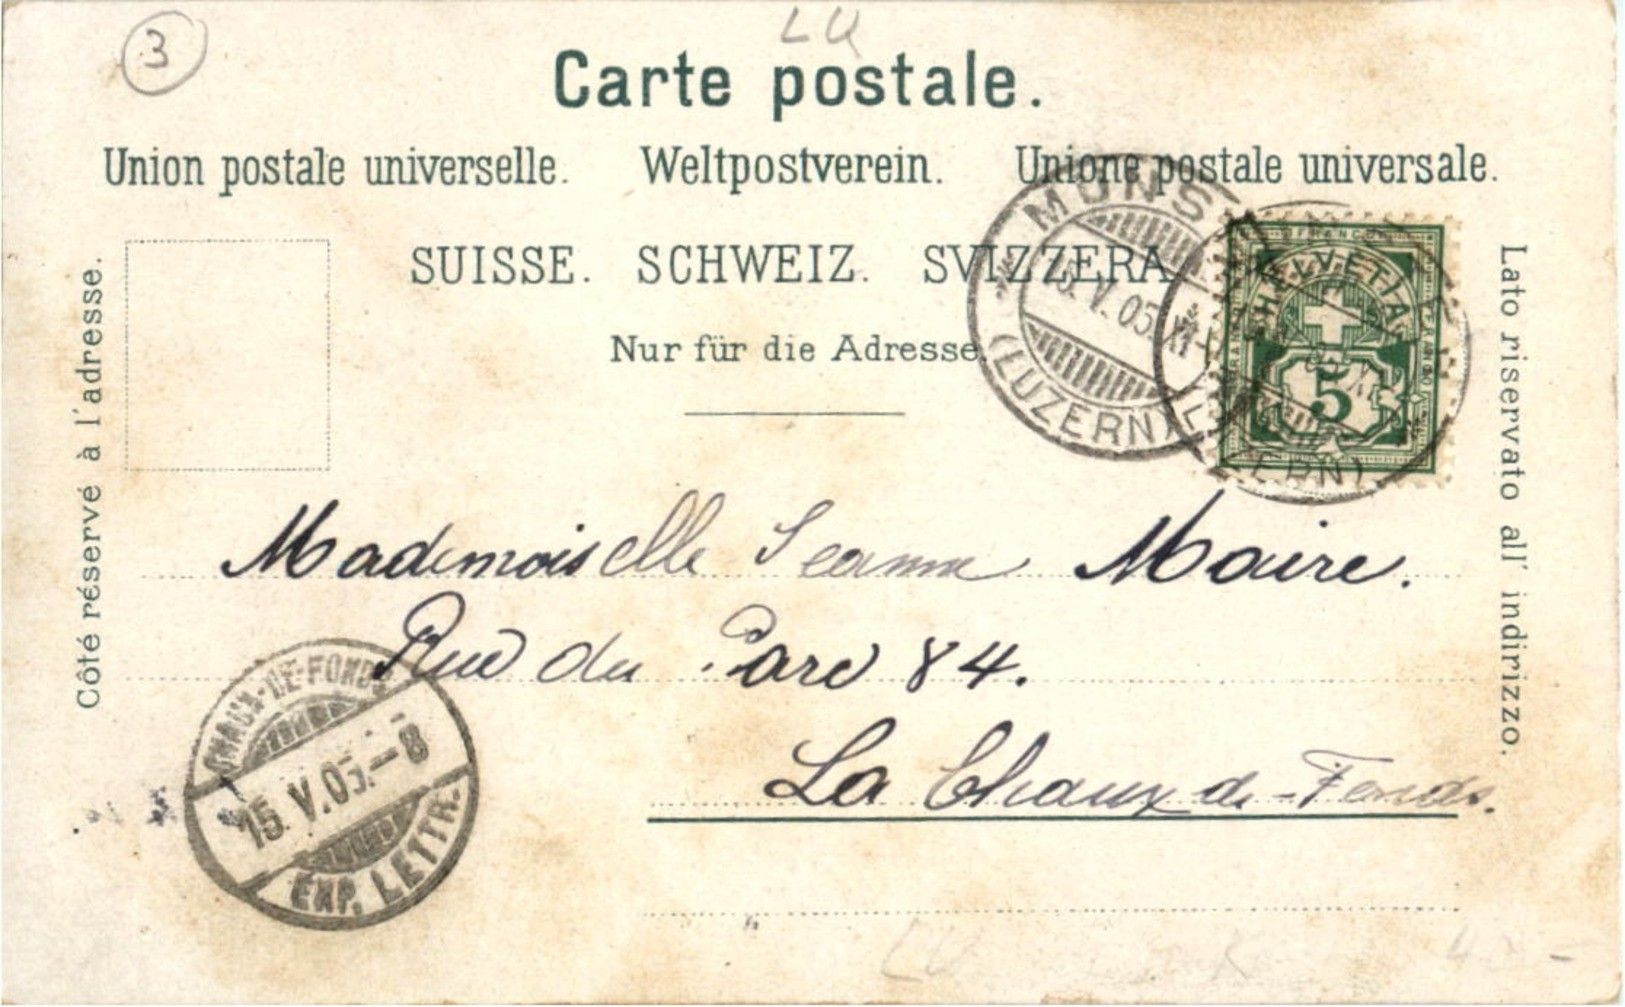 3
LU
Carte postale.
Union postale universelle. Weltpostverein. Unione postale universale.
SUISSE. SCHWEIZ. SVIZZERA
Nur für die Adresse.
Côté réservé à l'adresse.
Lato riservato all' indirizzo.
(LUZERN)
15. V. 05. XI
FRANCO
HELVETIA
5
Mademoiselle Jeanne Maire.
Rue du Parc 84.
La Chaux-de-Fonds.
CHAUX-DE-FONDS
15. V. 05. - 8
EXP. LETTR.
LU